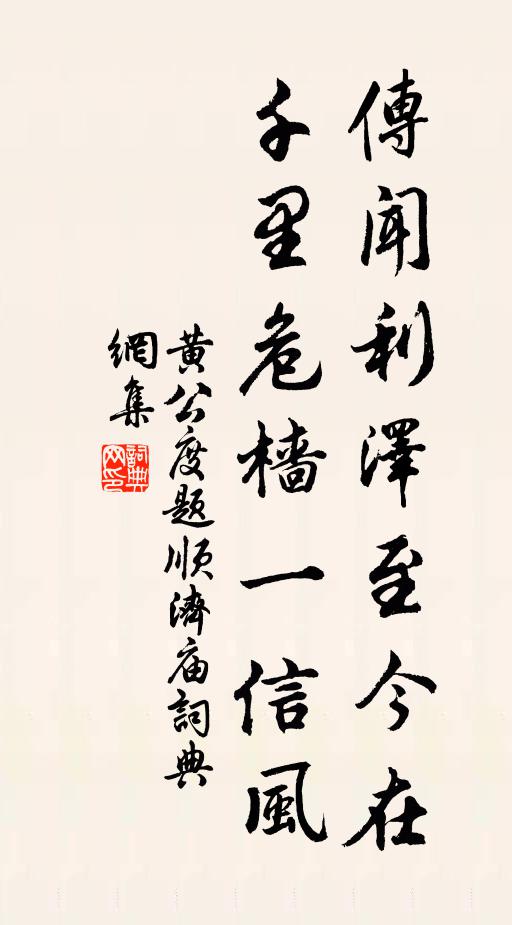 傳聞利澤至今在
千里危檣一信風
黄公度题順濟庙詞典
網集
詞典网印